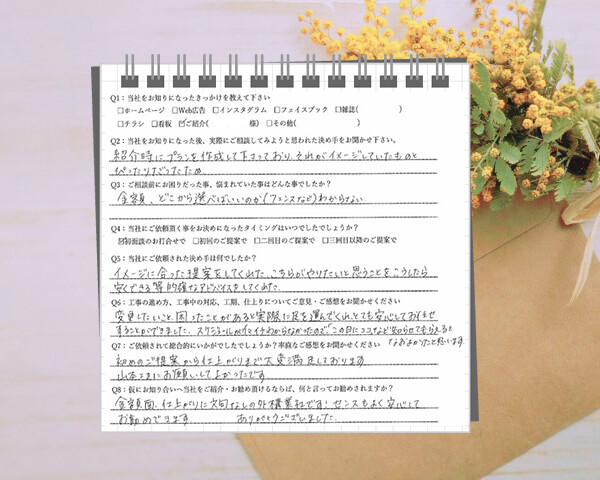 Q1：当社をお知りになったきっかけを教えて下さい
□ホームページ □Web広告 □インスタグラム □フェイスブック □雑誌( )
□チラシ □看板 ☑ご紹介( 様) □その他( )
Q2：当社をお知りになった後、実際にご相談してみようと思われた決め手をお聞かせ下さい。
紹介時にプランを作成して下さっており、それがイメージしていたものと
ぴったりだったため
Q3：ご相談前にお困りだった事、悩まれていた事はどんな事でしたか？
金額、どこから選べばいいのか(フェンスなど)わからない
Q4：当社にご依頼頂く事をお決めになったタイミングはいつでしたでしょうか？
☑初面談のお打合せで □初回のご提案で □二回目のご提案で □三回目以降のご提案で
Q5：当社にご依頼された決め手は何でしたか？
イメージに合った提案をしてくれた、こちらがやりたいと思うことをこうしたら
安くできる等的確なアドバイスをしてくれた
Q6：工事の進め方、工事中の対応、工期、仕上りについてご意見・ご感想をお聞かせください
変更したいこと、困ったことがあると実際に足を運んでくれ、とても安心しておまかせ
することができました。スケジュールがイマイチわからなかったので、"この日にココ"など知らせてもらえると
なおよかったと思います
Q7：ご依頼されて総合的にいかがでしたでしょうか？率直なご感想をお聞かせください
初めのご提案から仕上がりまで大変満足しております
山本さまにお願いしてよかったです
Q8：仮にお知り合いへ当社をご紹介・お勧め頂けるならば、何と言ってお勧めされますか？
金額面、仕上がりに文句なしの外構業社です！センスもよく安心して
お勧めできます ありがとうございました